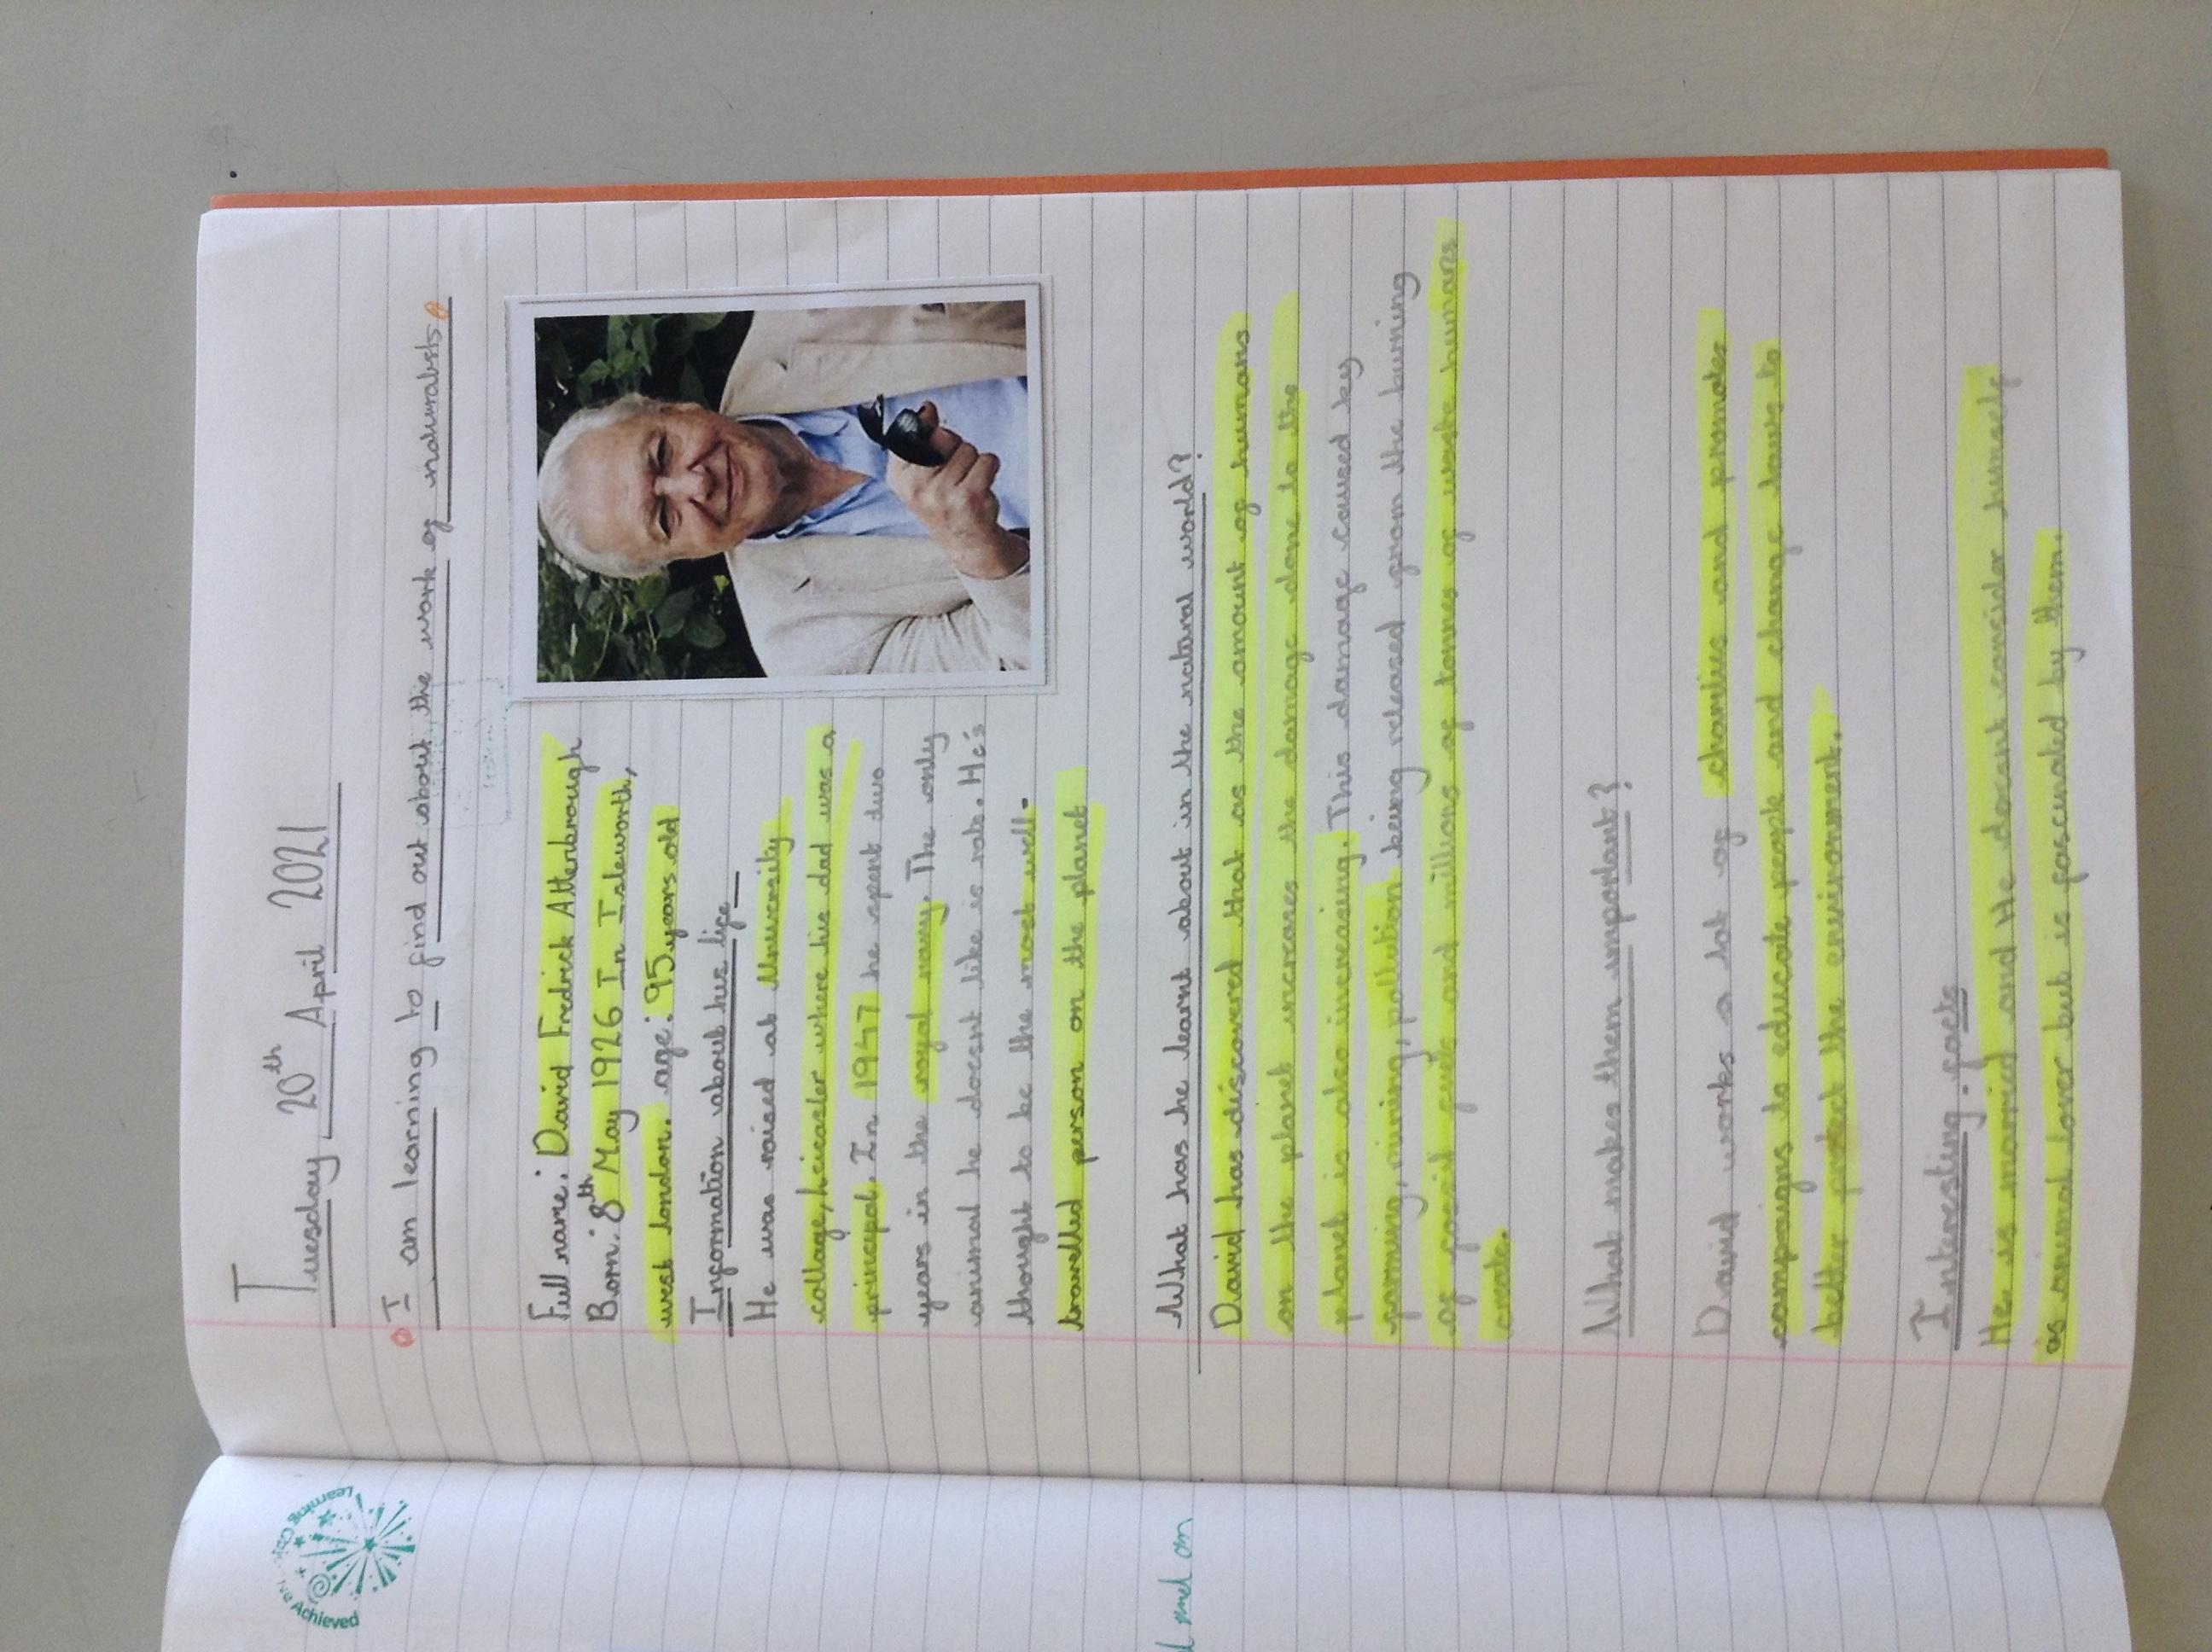 Tuesday 20th April 2021
I am learning to find out about the work of naturalists.
Full name: David Fredrick Attenbrough
Born: 8th May 1926 In Isleworth,
west london. age: 95 years old
Information about his life
He was raised at University
collage, leicester where his dad was a
principal. In 1947 he spent two
years in the royal navy. The only
animal he doesnt like is rats. He's
thought to be the most well-
travelled person on the planet
What has he learnt about in the natural world?
David has discovered that as the amount of humans
on the planet increases the damage done to the
planet is also increasing. This damage caused by
farming, mining, pollution being released from the burning
of fossil fuels and millions of tonnes of waste humans
create.
What makes them important?
David works a lot of charities and promotes
campaigns to educate people and change laws to
better protect the environment.
Interesting facts
He is married and He dosent consider himself
as animal lover but is fascinated by them.
Learning
Achieved
and on